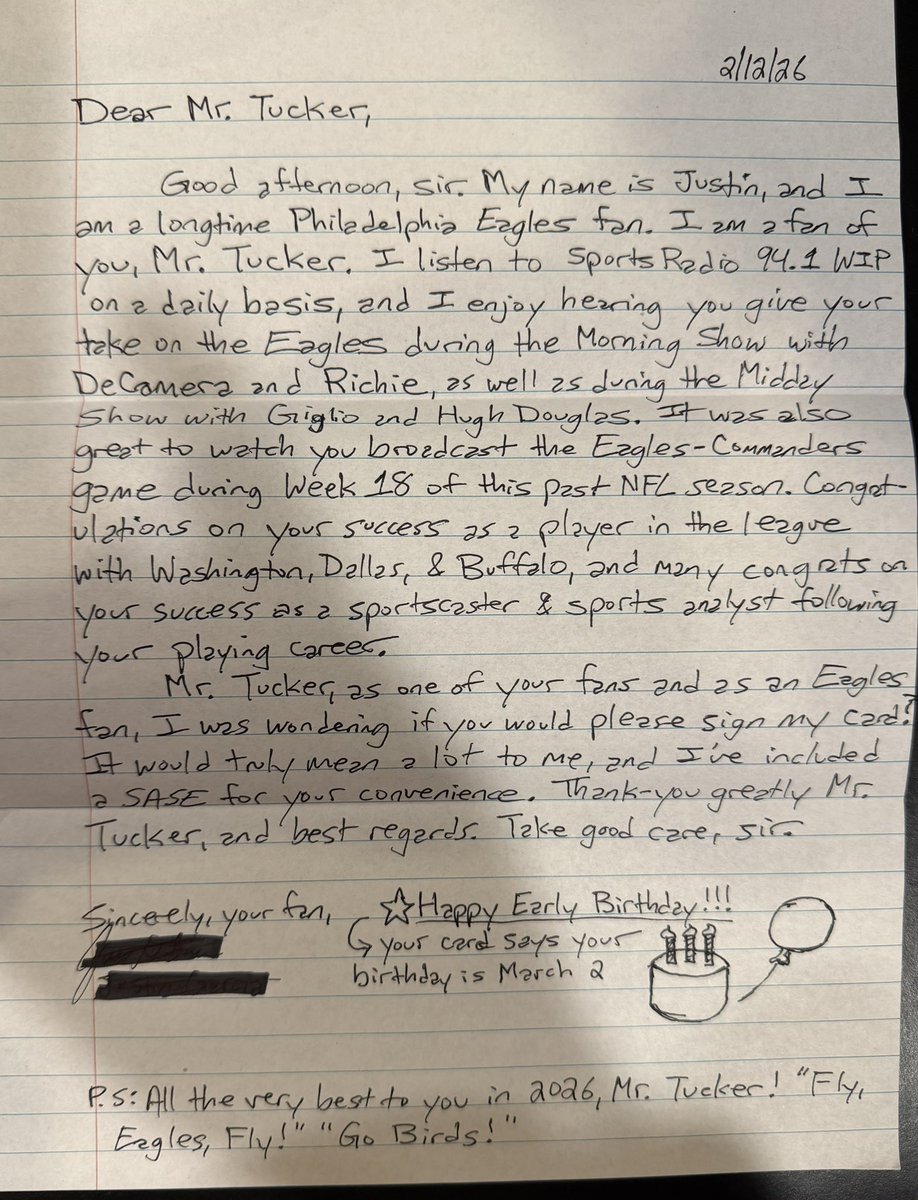 2/12/26
Dear Mr. Tucker,
Good afternoon, sir. My name is Justin, and I
am a longtime Philadelphia Eagles fan. I am a fan of
you, Mr. Tucker. I listen to Sports Radio 94.1 WIP
on a daily basis, and I enjoy hearing you give your
take on the Eagles during the Morning Show with
DeCamera and Richie, as well as during the Midday
Show with Giglio and Hugh Douglas. It was also
great to watch you broadcast the Eagles-Commanders
game during Week 18 of this past NFL season. Congrat-
ulations on your success as a player in the league
with Washington, Dallas, & Buffalo, and many congrats on
your success as a sportscaster & sports analyst following
your playing career.
Mr. Tucker, as one of your fans and as an Eagles
fan, I was wondering if you would please sign my card?
It would truly mean a lot to me, and I've included
a SASE for your convenience. Thank-you greatly Mr.
Tucker, and best regards. Take good care, sir.
Sincerely, your fan,
☆Happy Early Birthday!!!
↳ your card says your
birthday is March 2
P.S: All the very best to you in 2026, Mr. Tucker! "Fly,
Eagles, Fly!" "Go Birds!"